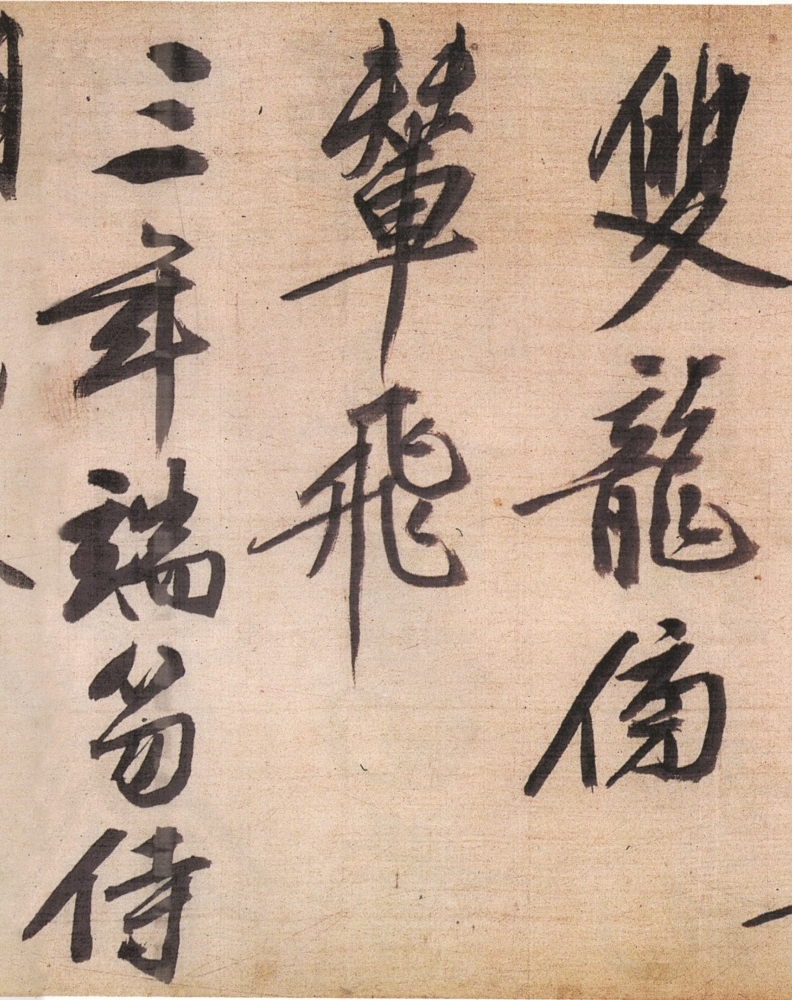 雙龍傍
輦飛
三年端笏侍